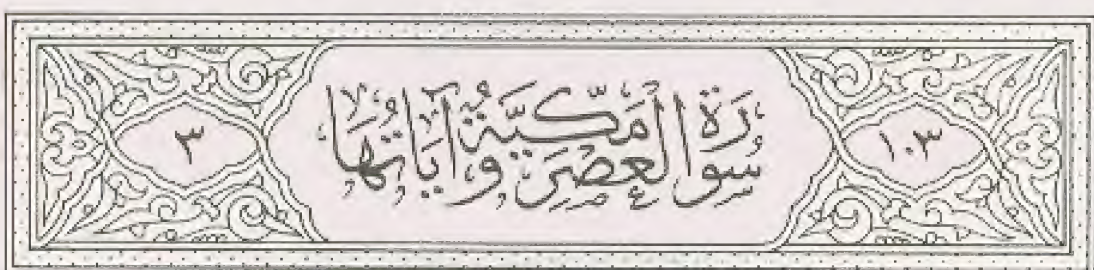 ١٠٣
سُورَةُ العَصْرِ مَكِّيَّةٌ وَآيَاتُهَا
٣